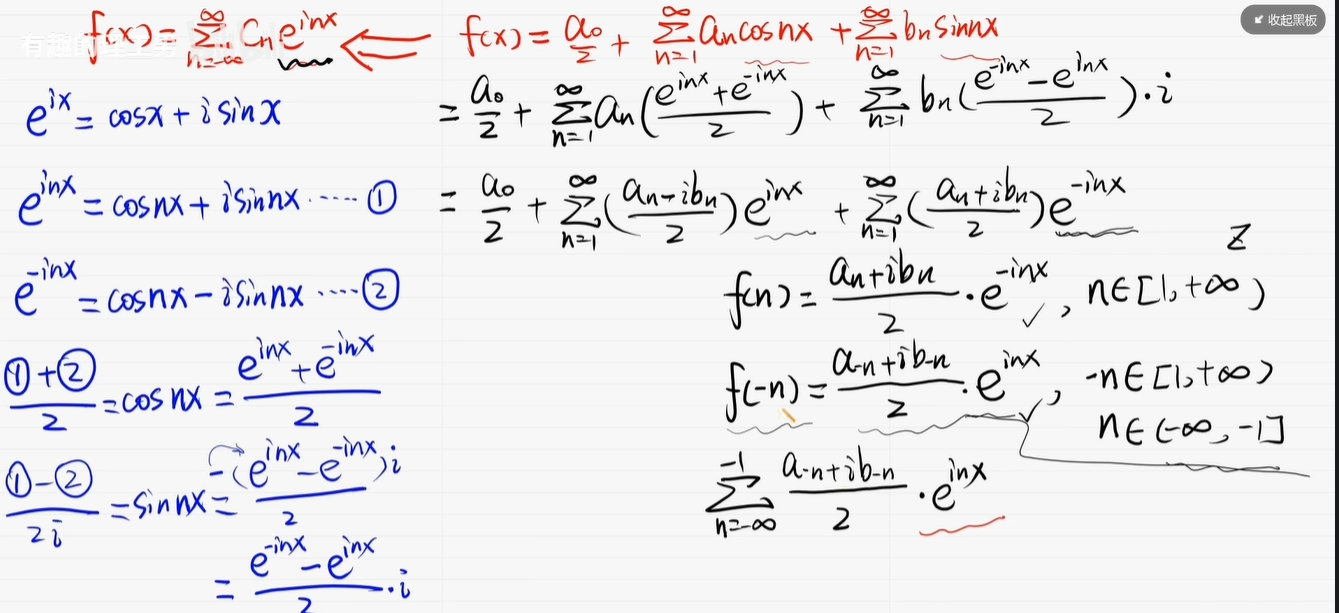 收起黑板
f(x) = \sum_{n=-\infty}^{\infty} c_n e^{inx} ⇐ f(x) = \frac{a_0}{2} + \sum_{n=1}^{\infty} a_n cos nx + \sum_{n=1}^{\infty} b_n sin nx
e^{ix} = cos x + i sin x
e^{inx} = cos nx + i sin nx ····· ①
e^{-inx} = cos nx - i sin nx ····· ②
\frac{① + ②}{2} = cos nx = \frac{e^{inx} + e^{-inx}}{2}
\frac{① - ②}{2i} = sin nx = \frac{-(e^{inx} - e^{-inx})i}{2}
= \frac{e^{-inx} - e^{inx}}{2} · i
= \frac{a_0}{2} + \sum_{n=1}^{\infty} a_n (\frac{e^{inx} + e^{-inx}}{2}) + \sum_{n=1}^{\infty} b_n (\frac{e^{-inx} - e^{inx}}{2}) · i
= \frac{a_0}{2} + \sum_{n=1}^{\infty} (\frac{a_n - ib_n}{2}) e^{inx} + \sum_{n=1}^{\infty} (\frac{a_n + ib_n}{2}) e^{-inx}
Z
f(n) = \frac{a_n + ib_n}{2} · e^{-inx}, n∈[1, +∞)
f(-n) = \frac{a_{-n} + ib_{-n}}{2} · e^{inx}, -n∈[1, +∞)
n∈(-∞, -1]
\sum_{n=-\infty}^{-1} \frac{a_{-n} + ib_{-n}}{2} · e^{inx}